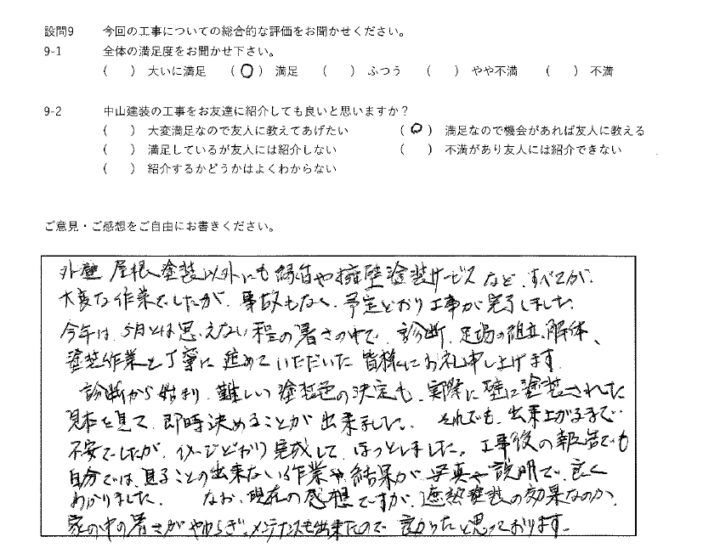 設問9 今回の工事についての総合的な評価をお聞かせください。
9-1 全体の満足度をお聞かせ下さい。
( ) 大いに満足 (○) 満足 ( ) ふつう ( ) やや不満 ( ) 不満
9-2 中山建装の工事をお友達に紹介しても良いと思いますか?
( ) 大変満足なので友人に教えてあげたい (○) 満足なので機会があれば友人に教える
( ) 満足しているが友人には紹介しない ( ) 不満があり友人には紹介できない
( ) 紹介するかどうかはよくわからない
ご意見・ご感想をご自由にお書きください。
外壁 屋根塗装以外にも縁台や擁壁塗装サービスなど、すべてが
大変な作業でしたが、事故もなく、予定どおり工事が完了しました。
今年は、5月とは思えない程の暑さの中で、診断、足場の組立、解体、
塗装作業と丁寧に進めていただいた皆様にお礼申し上げます。
診断から始まり、難しい塗装色の決定も、実際に壁に塗装された
見本を見て、即時決めることが出来ました。それでも、出来上がるまで
不安でしたが、イメージどおり完成して、ほっとしました。工事後の報告でも
自分では、見ることの出来ない作業や結果が、写真や説明で、良く
わかりました。 なお、現在の感想ですが、遮熱塗装の効果なのか、
家の中の暑さがやわらぎ、メンテナンスも出来たので、良かったと思っております。